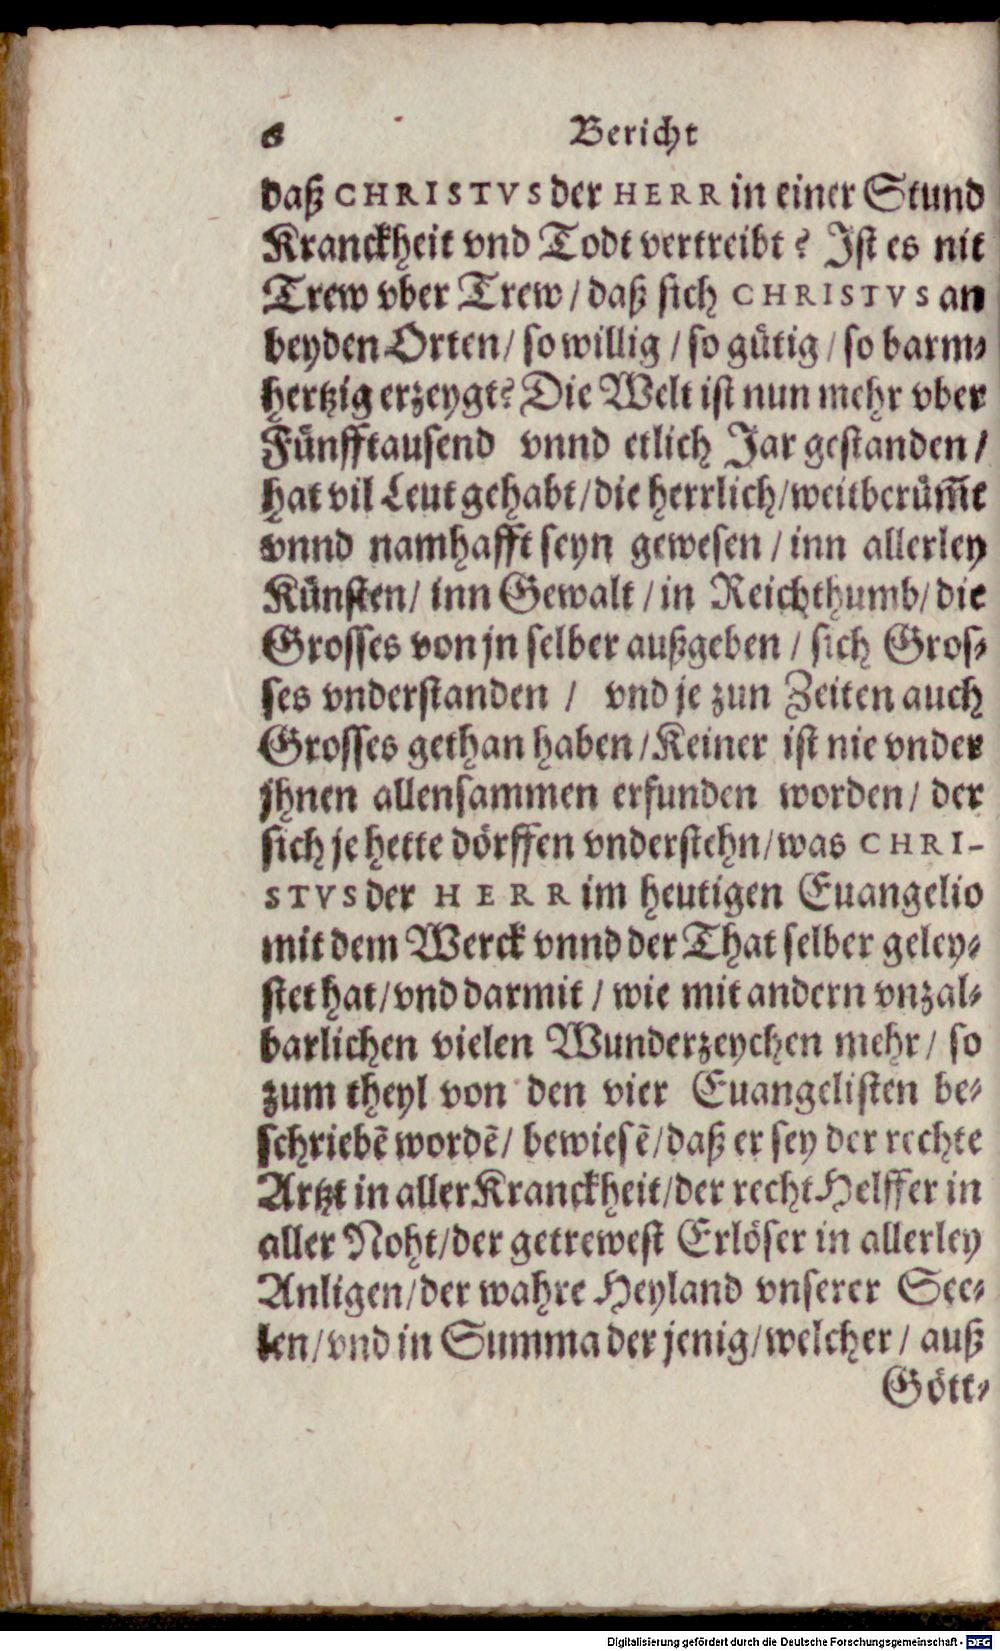 6 Bericht
daß CHRISTVS der HERR in einer Stund
Kranckheit vnd Todt vertreibt? Ist es nit
Trew vber Trew / daß sich CHRISTVS an
beyden Orten / so willig / so gütig / so barm-
hertzig erzeygt? Die Welt ist nun mehr vber
Fünfftausend vnnd etlich Jar gestanden /
hat vil Leut gehabt / die herrlich / weitberüm̃t
vnnd namhafft seyn gewesen / inn allerley
Künsten / inn Gewalt / in Reichthumb / die
Grosses von jn selber außgeben / sich Gros-
ses vnderstanden / vnd je zun Zeiten auch
Grosses gethan haben / Keiner ist nie vnder
jhnen allensammen erfunden worden / der
sich je hette dörffen vnderstehn / was CHRI-
STVS der HERR im heutigen Euangelio
mit dem Werck vnnd der That selber geley-
stet hat / vnd darmit / wie mit andern vnzal-
barlichen vielen Wunderzeychen mehr / so
zum theyl von den vier Euangelisten be-
schriebẽ wordẽ / bewiesẽ / daß er sey der rechte
Artzt in aller Kranckheit / der recht Helffer in
aller Noht / der getrewest Erlöser in allerley
Anligen / der wahre Heyland vnserer See-
len / vnd in Summa der jenig / welcher / auß
Gött-
Digitalisierung gefördert durch die Deutsche Forschungsgemeinschaft - DFG